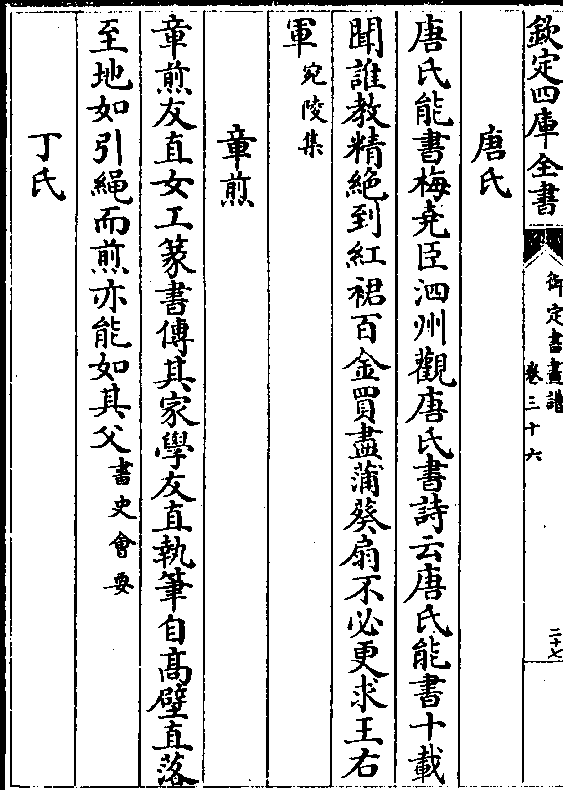 欽定四庫全書
御定書畫譜
卷三十六
二十七
唐氏
唐氏能書梅堯臣泗州觀唐氏書詩云唐氏能書十載
聞誰教精絶到紅裙百金買盡蒲葵扇不必更求王右
軍宛陵集
章煎
章煎友直女工篆書傳其家學友直執筆自髙壁直落
至地如引繩而煎亦能如其父書史會要
丁氏